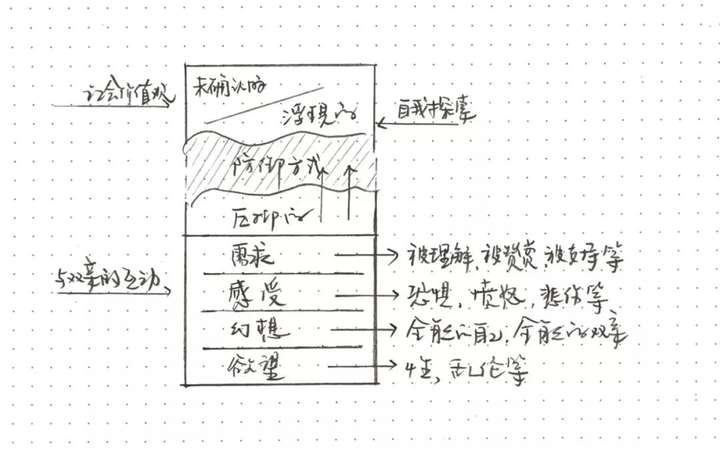 未确认的
社会价值观
浮现的
自我探索
防御方式
压抑的
需求 被理解、被赞赏、被支持等
与双亲的互动
感受 恐惧、愤怒、悲伤等
幻想 全能的自己、全能的双亲
欲望 性、乱伦等